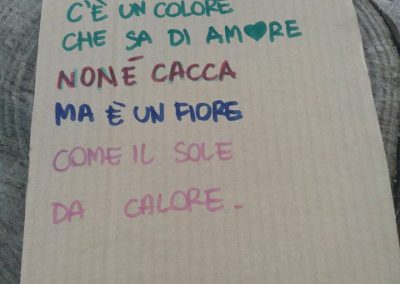 C'È UN COLORE
CHE SA DI AM♥RE
NON É CACCA
MA È UN FIORE
COME IL SOLE
DA CALORE.